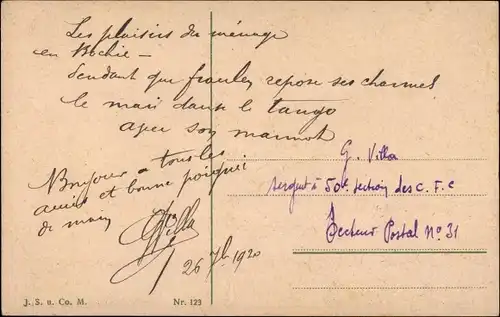 Les plaisirs du ménage
en Bochie —
Pendant que fraulen repose ses charmes
le mari danse le tango
avec son marmot
Bonjour a tous les
amis et bonne poignée
de main
G Villa
26 7b 1920
G. Villa
sergent à 50e section des C. F. C
Secteur Postal No 31
J. S. u. Co. M.
Nr. 123